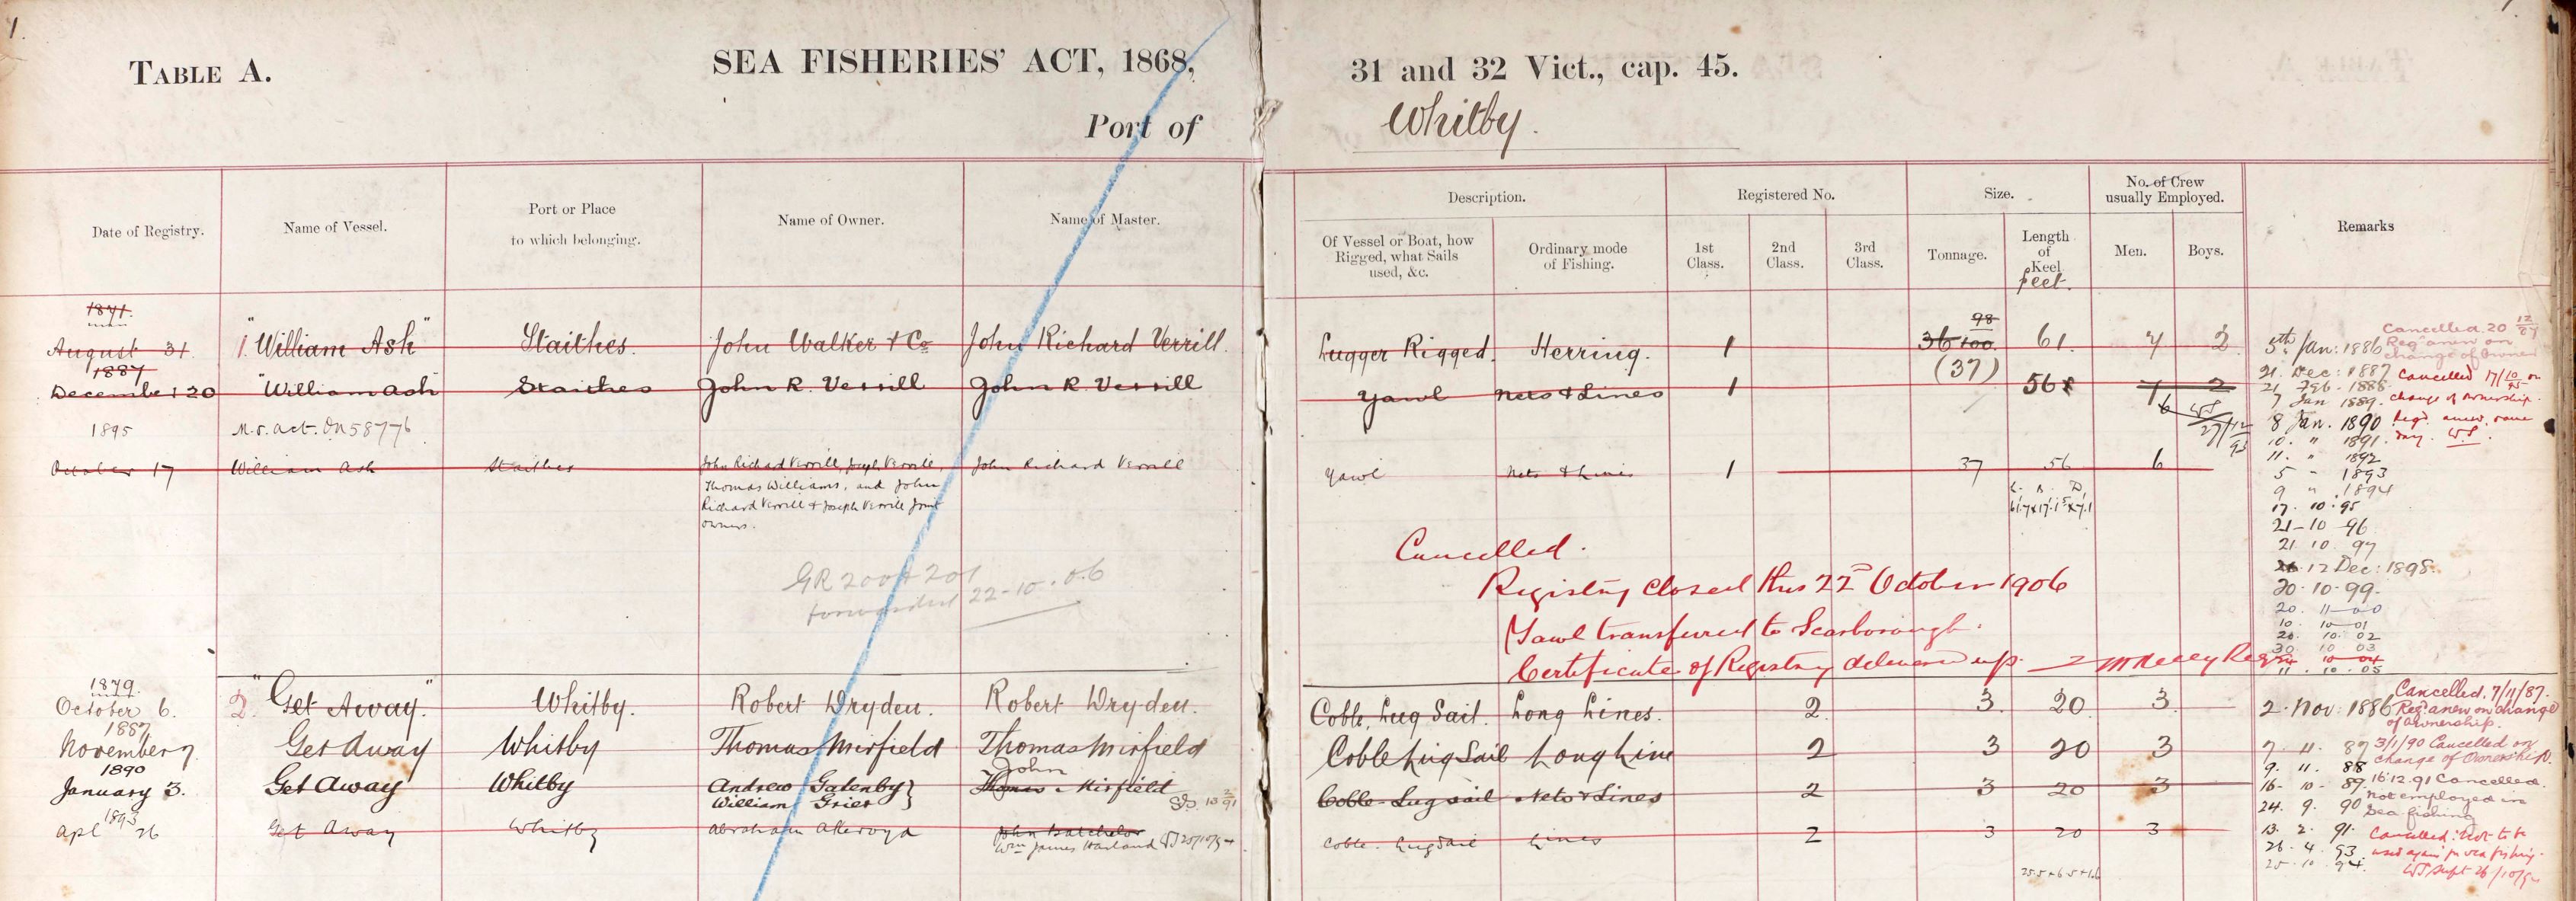 1.
TABLE A.
SEA FISHERIES' ACT, 1868,
31 and 32 Vict., cap. 45.
Port of
Whitby.
Date of Registry.
Name of Vessel.
Port or Place
to which belonging.
Name of Owner.
Name of Master.
Description.
Of Vessel or Boat, how
Rigged, what Sails
used, &c.
Ordinary mode
of Fishing.
Registered No.
1st
Class.
2nd
Class.
3rd
Class.
Size.
Tonnage.
Length
of
Keel
feet.
No. of Crew
usually Employed.
Men.
Boys.
Remarks
1871.
August 31 1. "William Ash" Staithes. John Walker & Co John Richard Verrill. Lugger Rigged. Herring. 1 36 98/100 61. 7 2
(37)
1887
December 20 "William Ash" Staithes John R. Verrill John R. Verrill Yawl Nets & Lines 1 56 7 2
6
27/12/93
1895 M.S. Act. ON 58776
October 17 William Ash Staithes John Richard Verrill, Joseph Verrill, John Richard Verrill Yawl Nets & Lines 1 37 56 6
Thomas Williams, and John
Richard Verrill & Joseph Verrill Joint
owners.
L. B. D.
61.7 x 17.15 x 7.1
5th Jan: 1886
Cancelled 20 12/87
Reg anew on
change of owner
21 Dec: 1887
21 Feb. 1888
7 Jan 1889.
Cancelled 17/10 95 on
change of ownership.
Reg. anew same
day. WS.
8 Jan. 1890
10. " 1891.
11. " 1892
5 " 1893
9 " 1894
17. 10. 95
21-10 96
21. 10. 97
12 Dec: 1898.
20. 10. 99.
20. 11 00
10. 10 01
20. 10. 02
30 10 03
10 04
11. 10. 05
GR 200 & 201
forwarded 22-10-06
Cancelled.
Registry closed this 22nd October 1906
(Yawl transferred to Scarborough.
Certificate of Registry delivered up.
1879.
October 6. 2. "Get Away." Whitby. Robert Dryden. Robert Dryden. Coble, Lug Sail. Long Lines. 2 3 20 3 2. Nov: 1886
Cancelled. 7/11/87.
Reg. anew on change
of ownership.
1887
November 7. Get Away Whitby Thomas Mirfield Thomas Mirfield Coble Lug Sail Long Line 2 3 20 3 7. 11. 87
3/1/90 Cancelled on
change of Ownership.
9. 11. 88
1890
January 3. Get Away Whitby Andrew Gatenby } John
William Grier Thomas Mirfield
Coble Lug sail Nets & Lines 2 3 20 3 16- 10- 89.
16.12.91 Cancelled.
Not employed in
Sea fishing
24. 9. 90
13. 2. 91.
1893
Apl 26 Get Away Whitby Abraham Alleroyd John Batchelor
Wm James Harland
Coble. Lug Sail Lines 2 3 20 3 26. 4. 93
25. 10. 94.
Cancelled: Not to be
used again for sea fishing.